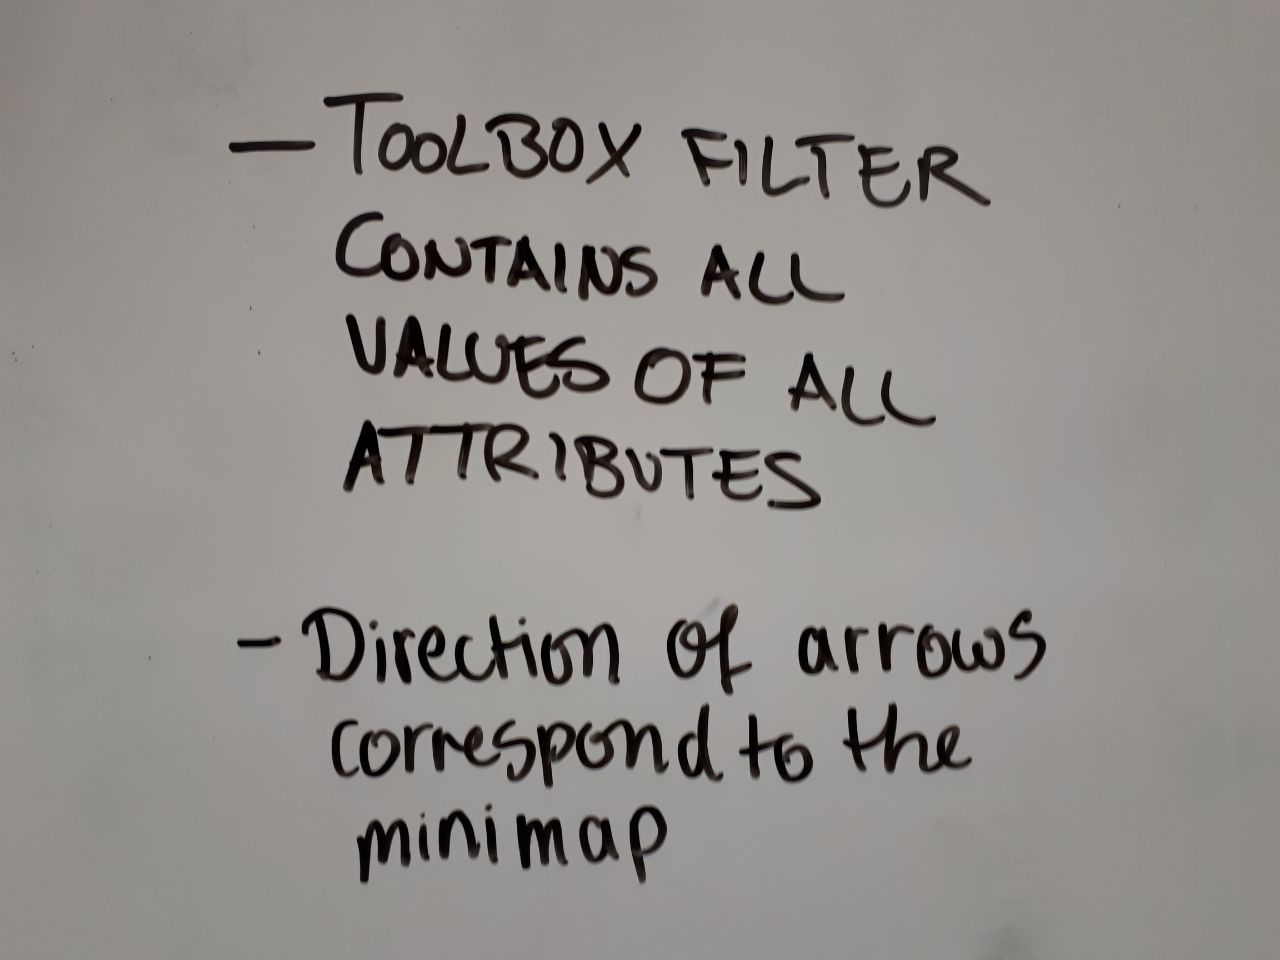 - TOOLBOX FILTER
CONTAINS ALL
VALUES OF ALL
ATTRIBUTES
- Direction of arrows
correspond to the
minimap